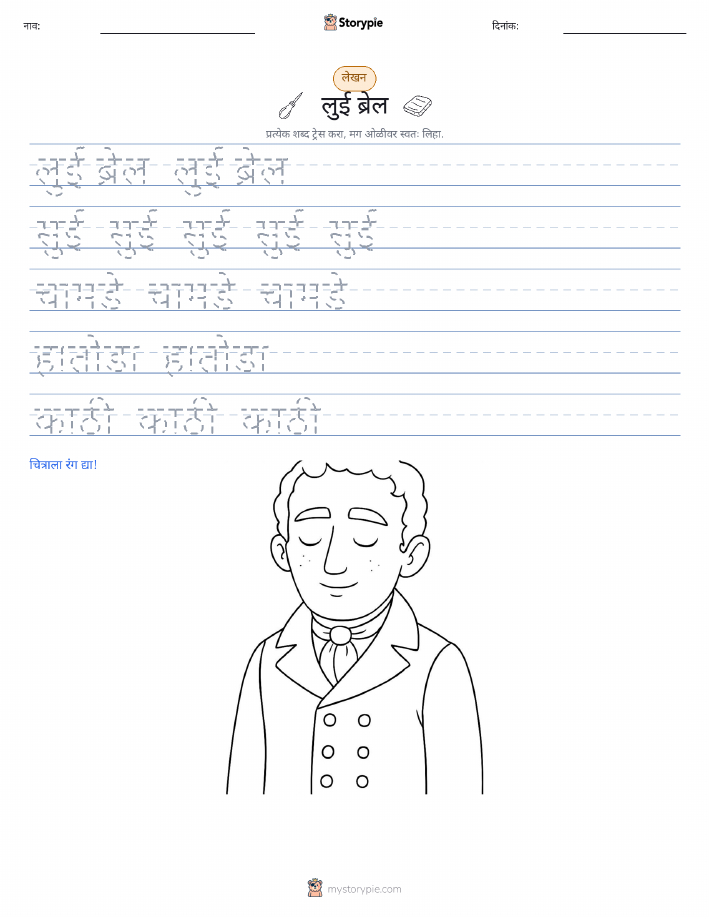 नाव:
Storypie
दिनांक:
लेखन
लुई ब्रेल
प्रत्येक शब्द ट्रेस करा, मग ओळीवर स्वतः लिहा.
लुई ब्रेल लुई ब्रेल
सुई सुई सुई सुई सुई
चामडे चामडे चामडे
हातोडा हातोडा
काठी काठी काठी
चित्राला रंग द्या!
mystorypie.com